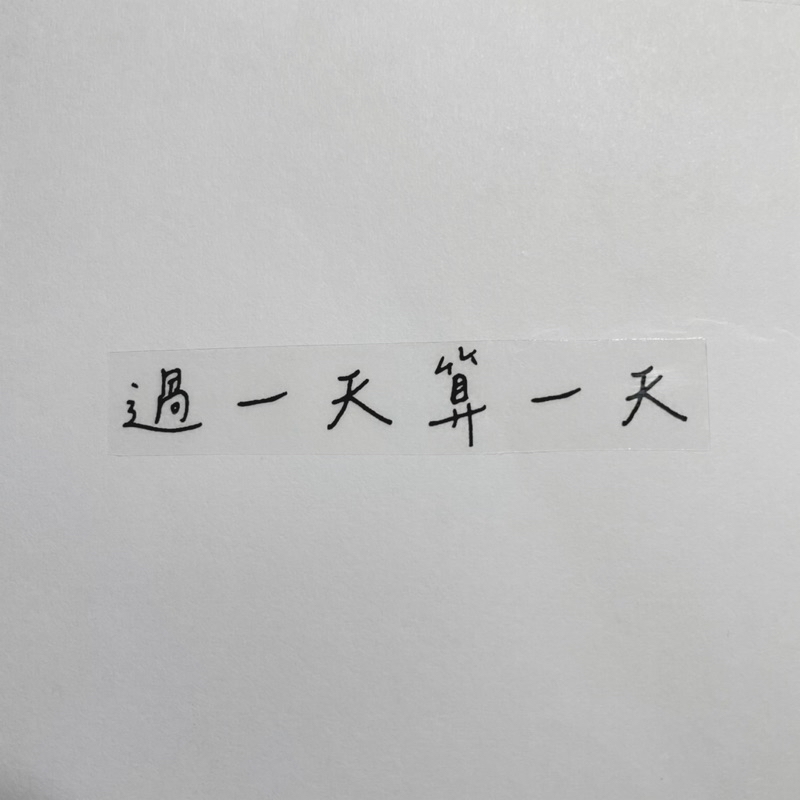 過一天算一天